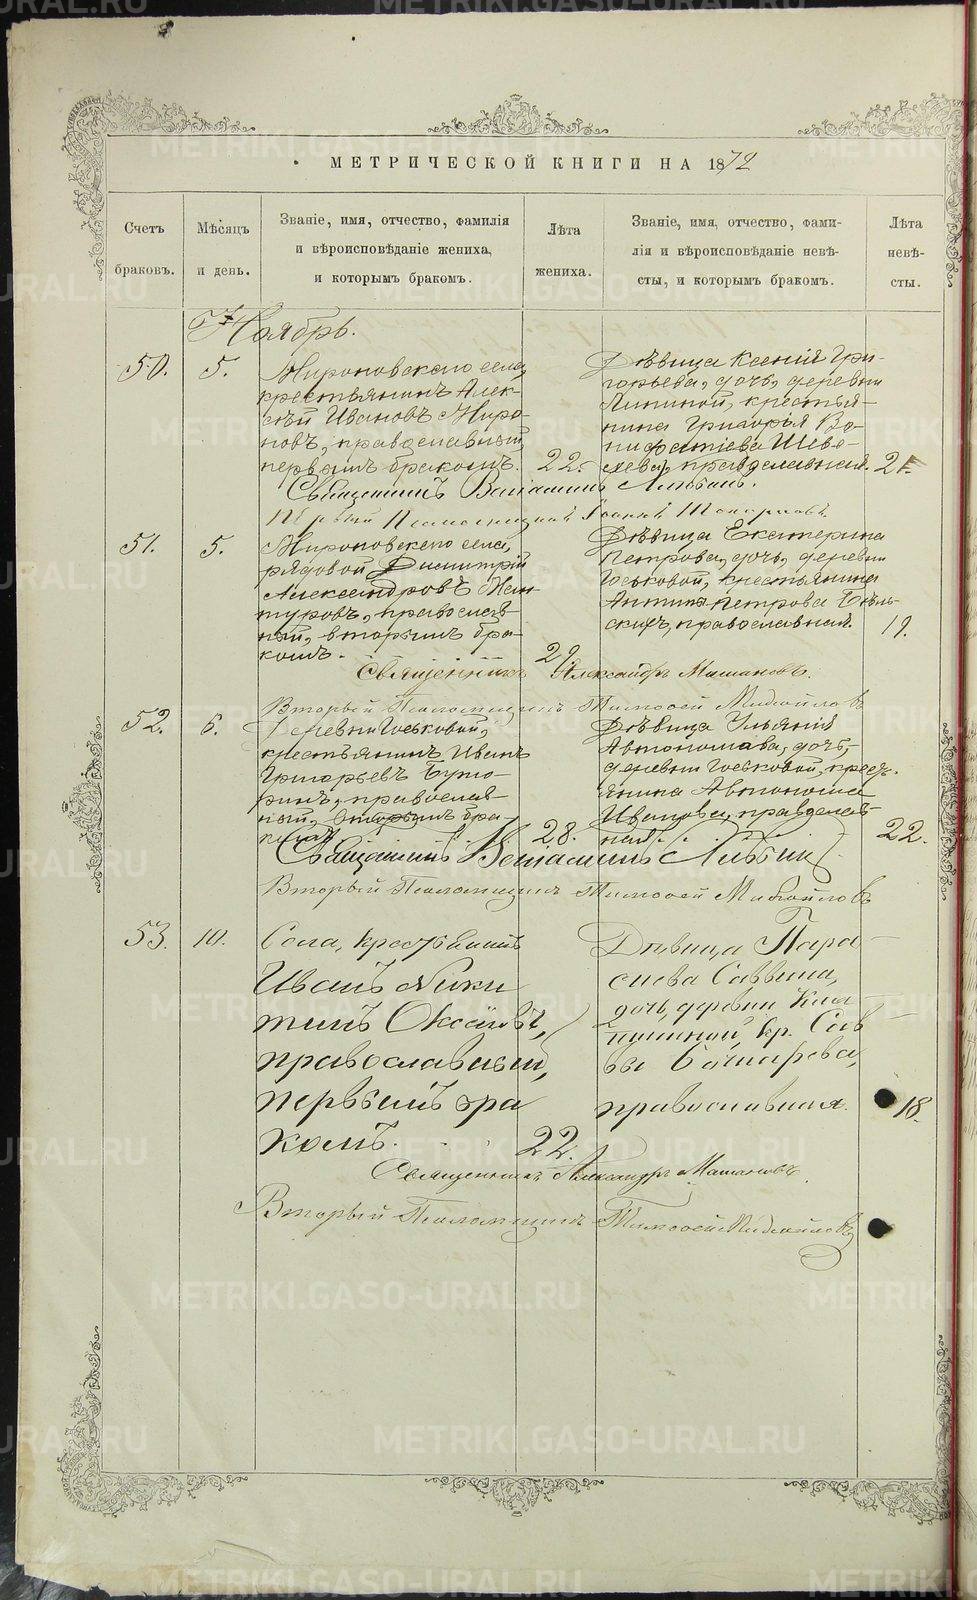 МЕТРИЧЕСКОЙ КНИГИ НА 1872
Счетъ
браковъ.
Мѣсяцъ
и день.
Званіе, имя, отчество, фамилія
и вѣроисповѣданіе жениха,
и которымъ бракомъ.
Лѣта
жениха.
Званіе, имя, отчество, фами-
лія и вѣроисповѣданіе невѣ-
сты, и которымъ бракомъ.
Лѣта
невѣ-
сты.
Ноябрь.
50.
5.
Мироновскаго села,
крестьянинъ Алек-
сѣй Ивановъ Миро-
новъ, православный,
первымъ бракомъ.
22.
Дѣвица Ксенія Гри-
горьева, дочь, деревни
крестья-
нина Григорія Во-
нифатіева Шеве-
лева, православная.
21.
Священникъ
Первый Псаломщикъ
51.
5.
Мироновскаго села,
рядовой Димитрій
Александровъ
православ-
ный, вторымъ бра-
комъ.
29.
Дѣвица Екатерина
Петрова, дочь, деревни
Госьковой, крестьянина
Петрова Бѣль-
скихъ, православная.
19.
Священникъ Александръ
Второй Псаломщикъ Тимоѳей Михайловъ
52.
6.
Деревни Госьковой,
крестьянинъ Иванъ
Григорьевъ Буто-
ринъ, православ-
ный, вторымъ бра-
комъ
28.
Дѣвица Ульянія
Автономова, дочь,
деревни Госьковой, крест-
янина Автонома
Иванова, православ-
ная
22.
Священникъ
Вторый Псаломщикъ Тимоѳей Михайловъ
53.
10.
Села, крестьянинъ
Иванъ Ники
тинъ
православный,
первымъ бра
комъ.
22.
Дѣвица Пара
скева Саввина,
дочь, деревни
кр. Сав
вы
православная.
18.
Священникъ Александръ
Вторый Псаломщикъ Тимоѳей Михайловъ
METRIKI.GASO-URAL.RU